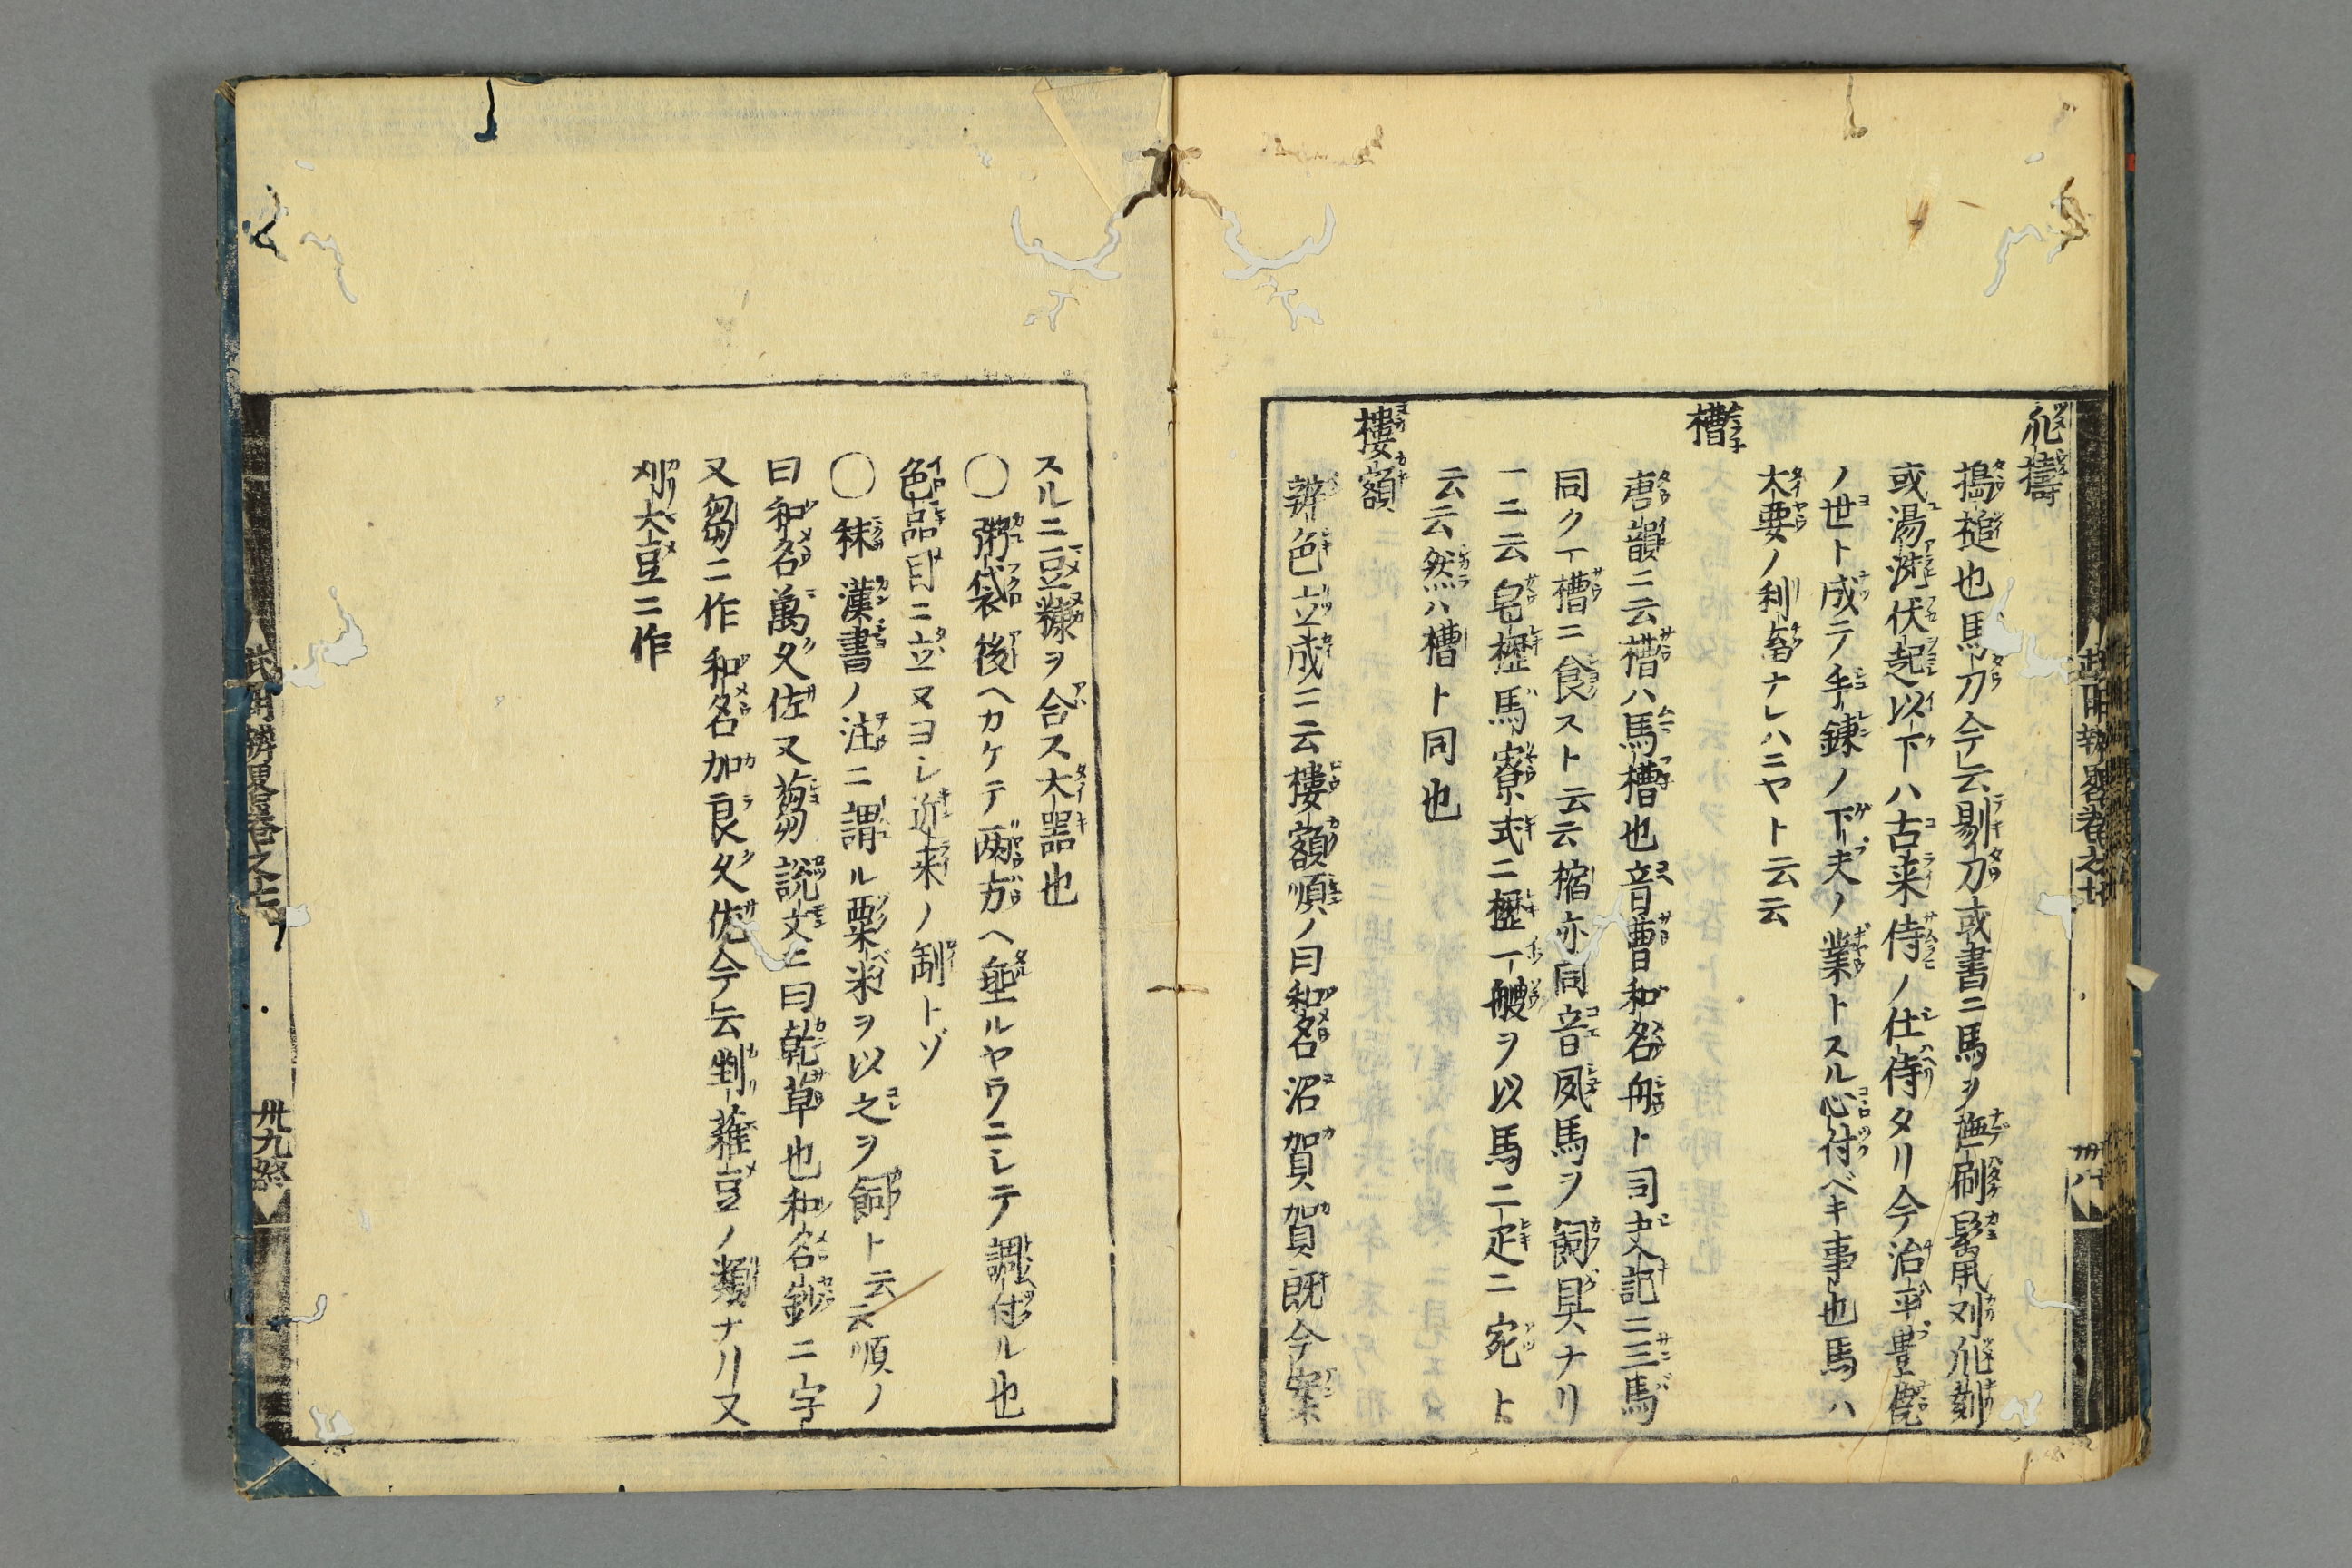 爪擣
搗槌也馬刀今云剔刀或書ニ馬ヲ撫刷髪鬣刈爪刻
或湯洗伏起以下ハ古来侍ノ仕侍タリ今治平豊
ノ世ト成テ手錬ノ下夫ノ業トスル心付ベキ事也馬ハ
大要ノ利畜ナレハニヤト云云
槽
唐韻ニ云槽ハ馬槽也音曹和名舟ト司史記ニ三馬
同ク一槽ニ食スト云云 亦同音 馬ヲ飼具ナリ
一ニ云皂櫪馬寮式ニ櫪一艘ヲ以馬二疋ニ宛ト
云云然ハ槽ト同也
樓額
辨色立成ニ云樓額順ノ曰和名沼賀賀既今案
武用辨畧巻之七
卅八
スルニ豆糠ヲ合ス大器也
〇粥袋後ヘカケテ両方ヘ垂ルヤウニシテ調付ル也
色品目ニ立ヌヨシ近来ノ制トゾ
〇秣漢書ノ注ニ謂ル粟米ヲ以之ヲ飼ト云云順ノ
曰和名萬久佐又蒭説文ニ曰乾草也和名鈔ニ字
又蒭ニ作和名加良久佐今云 雑豆ノ類ナリ又
刈大豆ニ作
武用辨畧巻之七
卅九終